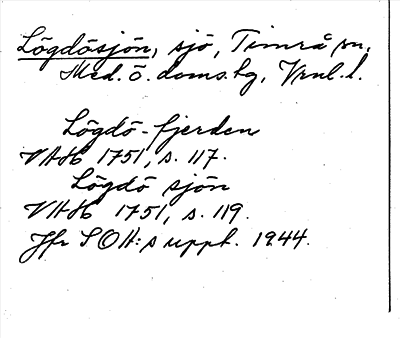 Lögdösjön, sjö, Timrå sn,
Med. ö. doms.hg, Vrnl. l.
Lögdö-fjerden
VAH 1751, s. 117.
Lögdö sjön
VAH 1751, s. 119.
Jfr SOH:s uppt. 1944.